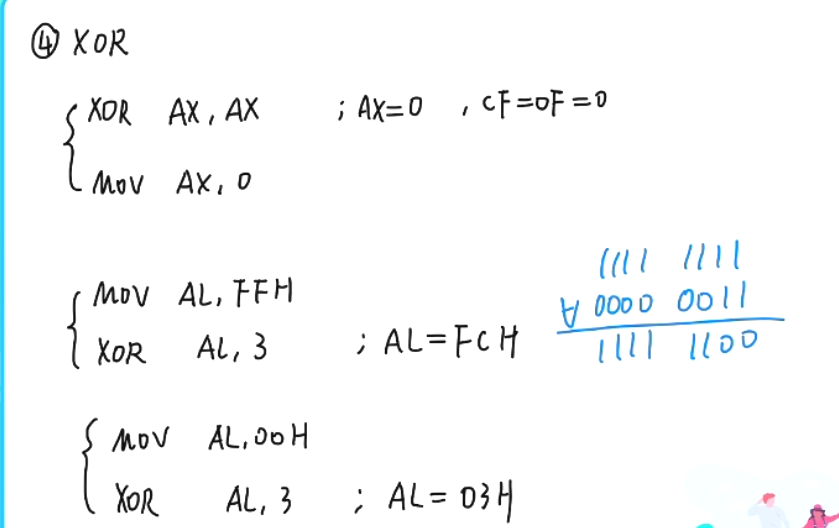 ④ XOR
XOR AX, AX ; AX=0 , CF=OF=0
MOV AX, 0
MOV AL, FFH
XOR AL, 3 ; AL=FCH
1111 1111
∀ 0000 0011
1111 1100
MOV AL, 00H
XOR AL, 3 ; AL= 03H